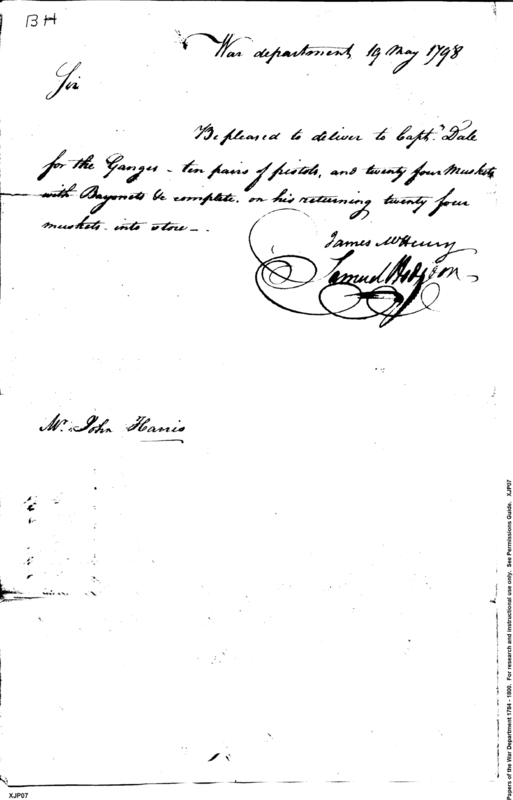 BH
War department, 19 May 1798
Sir
Be pleased to deliver to Capt. Dale
for the Ganges - ten pairs of pistols, and twenty four Muskets
with Bayonets &c complete. on his returning twenty four
muskets into store -.
James McHenry
Samuel Hodgdon
Mr. John Harris
XJP07
Papers of the War Department 1784 - 1800. For research and instructional use only. See Permissions Guide. XJP07